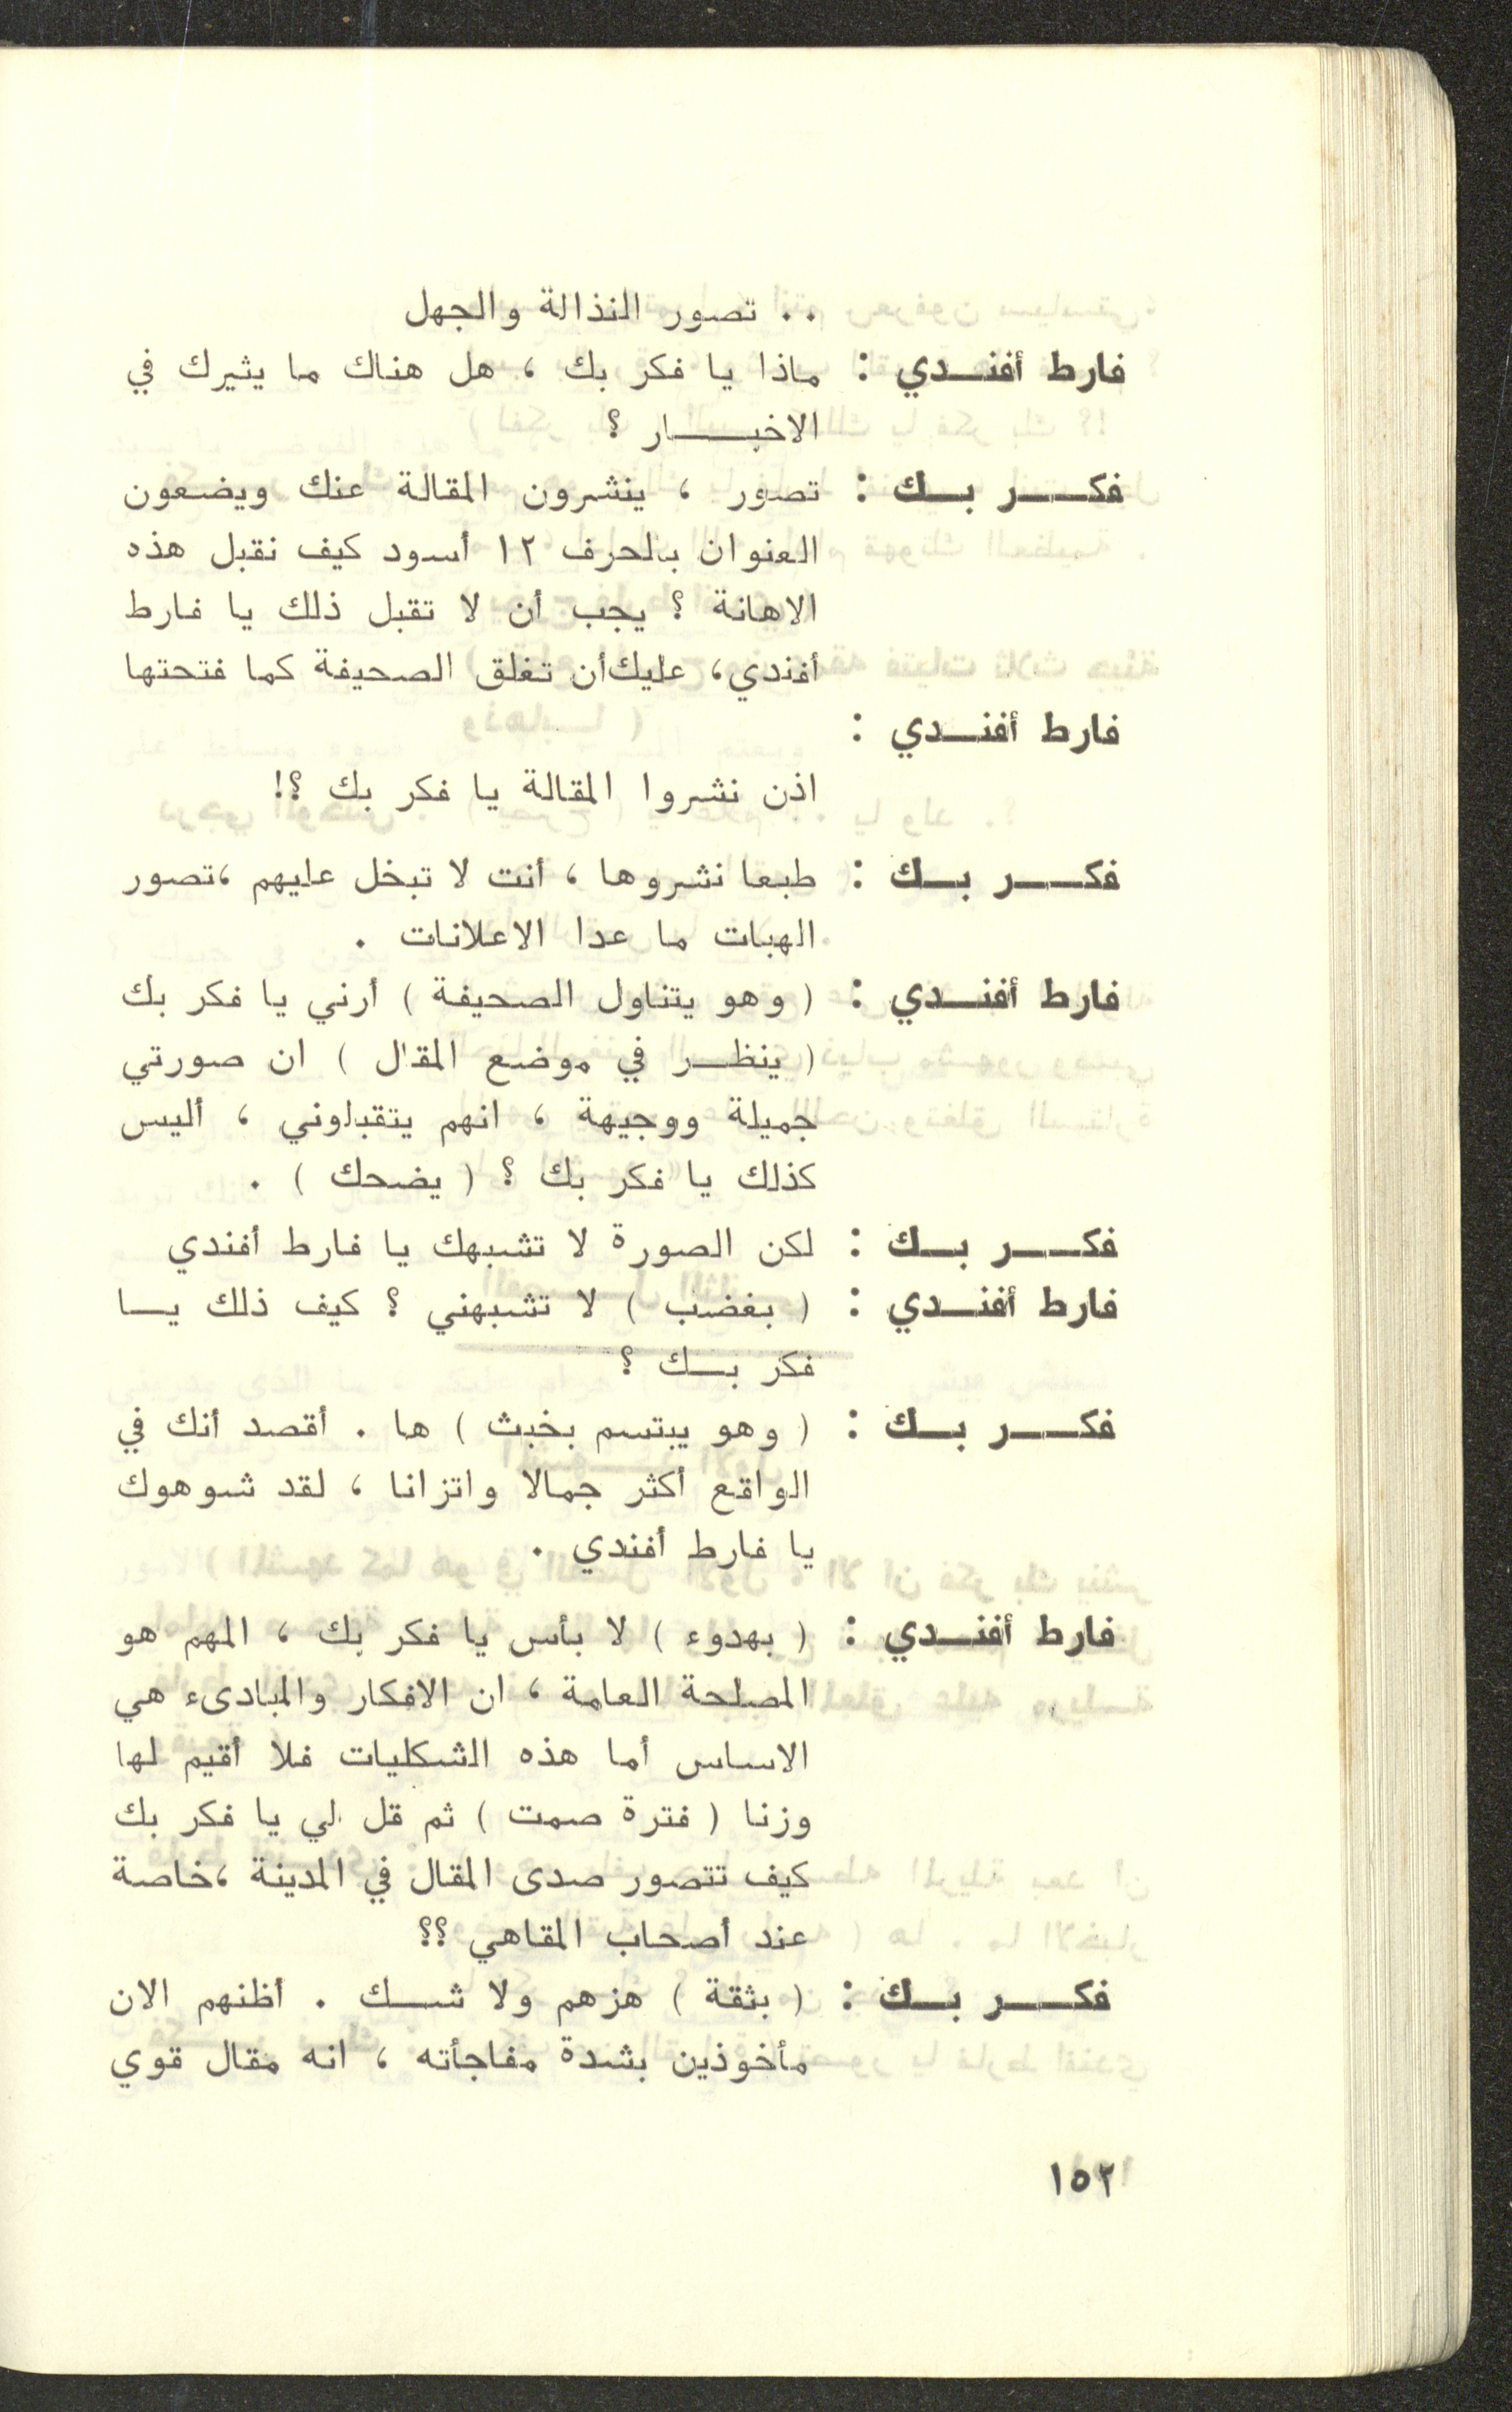 .. تصور النذالة والجهل
فارط أفنــدي : ماذا يا فكر بك ، هل هناك ما يثيرك في
الاخبــــار ؟
فكـــر بــك : تصور ، ينشرون المقالة عنك ويضعون
العنوان بالحرف ١٢ أسود كيف نقبل هذه
الاهانة ؟ يجب أن لا تقبل ذلك يا فارط
أفندي، عليك أن تغلق الصحيفة كما فتحتها
فارط أفنــدي :
اذن نشروا المقالة يا فكر بك ؟!
فكـــر بــك : طبعا نشروها ، أنت لا تبخل عليهم ،تصور
الهبات ما عدا الاعلانات .
فارط أفنــدي : ( وهو يتناول الصحيفة ) أرني يا فكر بك
( ينظــر في موضع المقال ) ان صورتي
جميلة ووجيهة ، انهم يتقبلوني ، أليس
كذلك يا فكر بك ؟ ( يضحك ) .
فكـــر بــك : لكن الصورة لا تشبهك يا فارط أفندي
فارط أفنــدي : ( بغضب ) لا تشبهني ؟ كيف ذلك يــا
فكر بــك ؟
فكـــر بــك : ( وهو يبتسم بخبث ) ها . أقصد أنك في
الواقع أكثر جمالا واتزانا ، لقد شوهوك
يا فارط أفندي .
فارط أفنــدي : ( بهدوء ) لا بأس يا فكر بك ، المهم هو
المصلحة العامة ، ان الافكار والمبادىء هي
الاساس أما هذه الشكليات فلا أقيم لها
وزنا ( فترة صمت ) ثم قل لي يا فكر بك
كيف تتصور صدى المقال في المدينة ،خاصة
عند أصحاب المقاهي ؟؟
فكـــر بــك : ( بثقة ) هزهم ولا شــك . أظنهم الان
مأخوذين بشدة مفاجأته ، انه مقال قوي
١٥٢